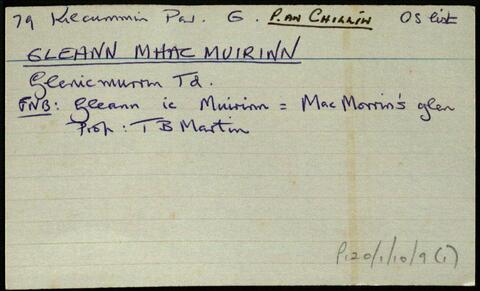 79 Kilcummin Par. G. P. AN CHILLÍN OS list
GLEANN MHAC MUIRINN
Glenicmurrin Td.
FNB: Gleann ic Muirinn = Mac Morrin's glen
Prop: T B Martin
P120/1/10/9(1)